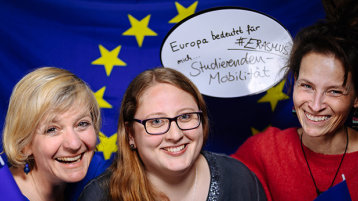 Europa bedeutet für
mich... #ERASMUS
Studierenden-
Mobilität